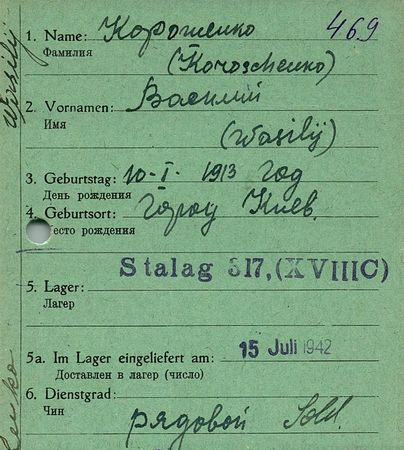 469
1. Name: Корошенко
Фамилия
(Koroschenko)
2. Vornamen: Василий
Имя
(Wasilij)
3. Geburtstag: 10-I. 1913 год
День рождения
4. Geburtsort: Город Киев.
есто рождения
Stalag 317, (XVIIIC)
5. Lager:
Лагерь
5a. Im Lager eingeliefert am: 15 Juli 1942
Доставлен в лагерь (число)
6. Dienstgrad:
Чин
рядовой Sold.
Wasilij